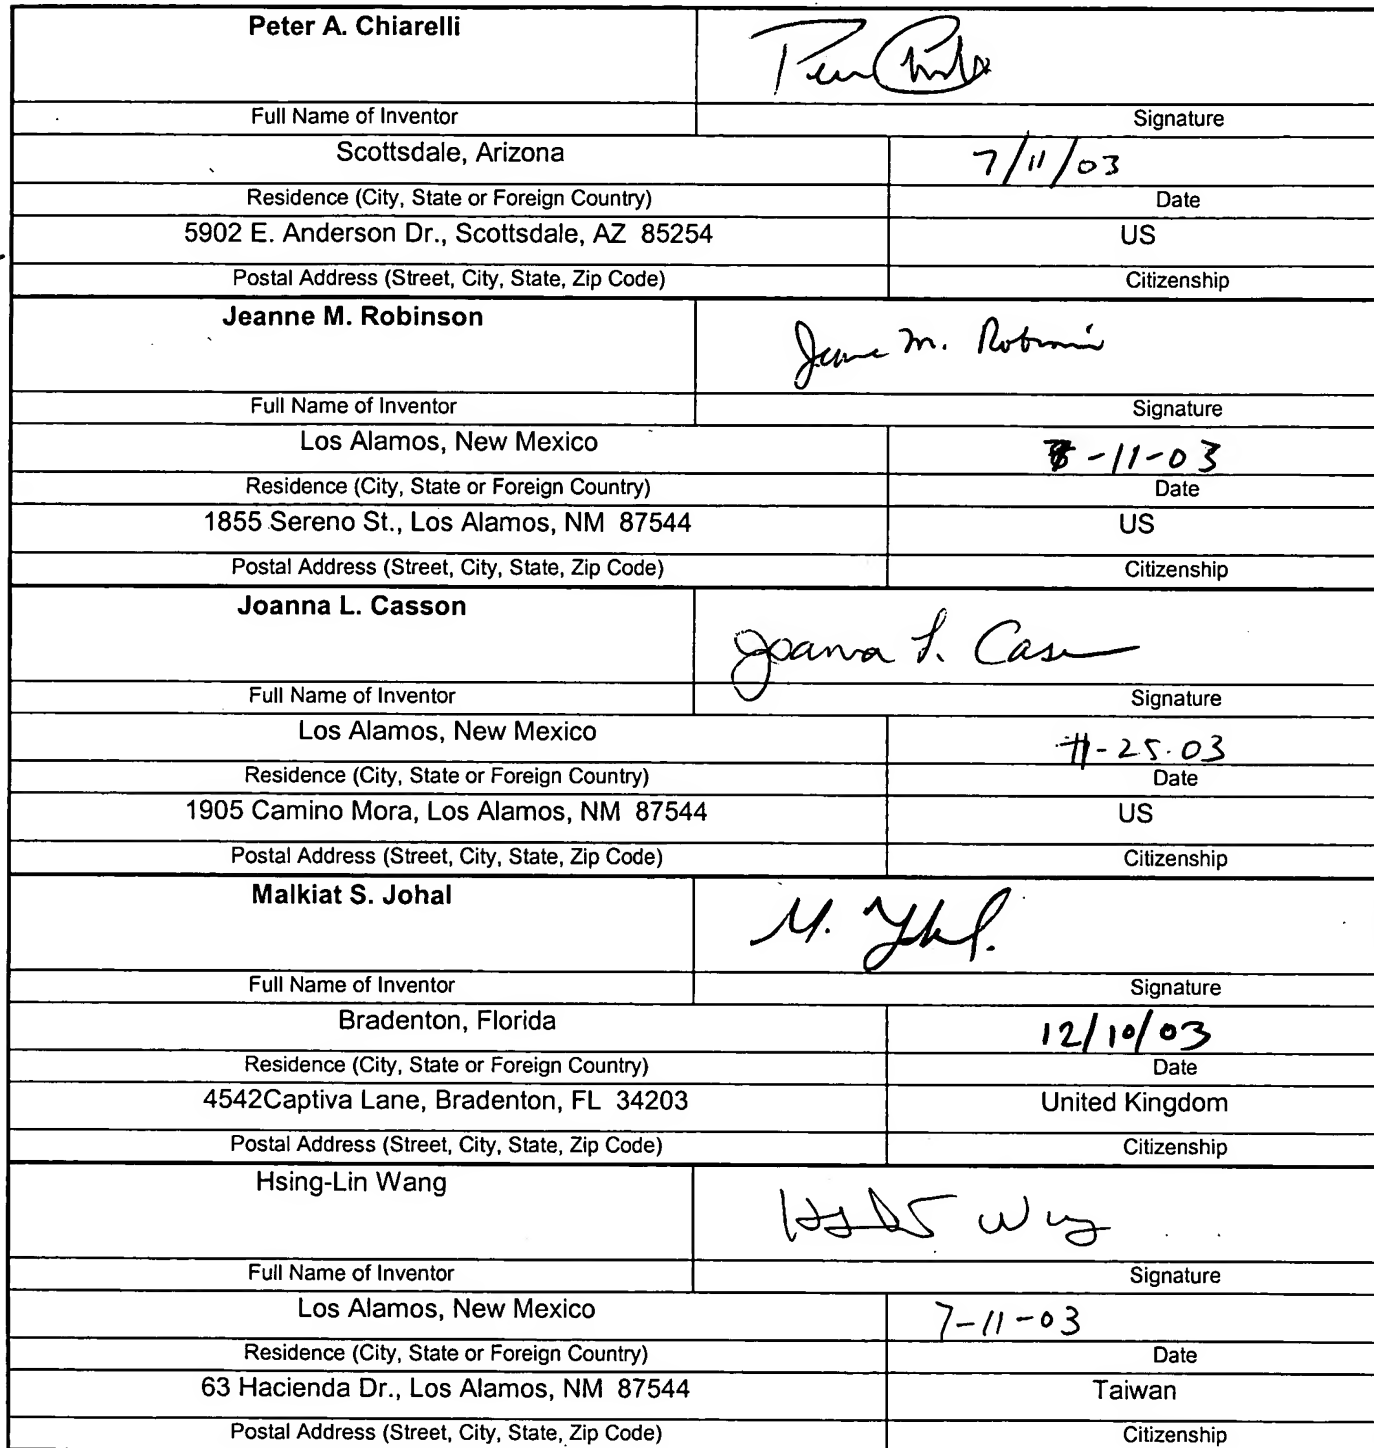 Peter A. Chiarelli
Full Name of Inventor Signature
Scottsdale, Arizona 7/11/03
Residence (City, State or Foreign Country) Date
5902 E. Anderson Dr., Scottsdale, AZ 85254 US
Postal Address (Street, City, State, Zip Code) Citizenship
Jeanne M. Robinson Jeanne M. Robinson
Full Name of Inventor Signature
Los Alamos, New Mexico -11-03
Residence (City, State or Foreign Country) Date
1855 Sereno St., Los Alamos, NM 87544 US
Postal Address (Street, City, State, Zip Code) Citizenship
Joanna L. Casson Joanna L. Casson
Full Name of Inventor Signature
Los Alamos, New Mexico 11-25-03
Residence (City, State or Foreign Country) Date
1905 Camino Mora, Los Alamos, NM 87544 US
Postal Address (Street, City, State, Zip Code) Citizenship
Malkiat S. Johal M. Johal.
Full Name of Inventor Signature
Bradenton, Florida 12/10/03
Residence (City, State or Foreign Country) Date
4542Captiva Lane, Bradenton, FL 34203 United Kingdom
Postal Address (Street, City, State, Zip Code) Citizenship
Hsing-Lin Wang
Full Name of Inventor Signature
Los Alamos, New Mexico 7-11-03
Residence (City, State or Foreign Country) Date
63 Hacienda Dr., Los Alamos, NM 87544 Taiwan
Postal Address (Street, City, State, Zip Code) Citizenship